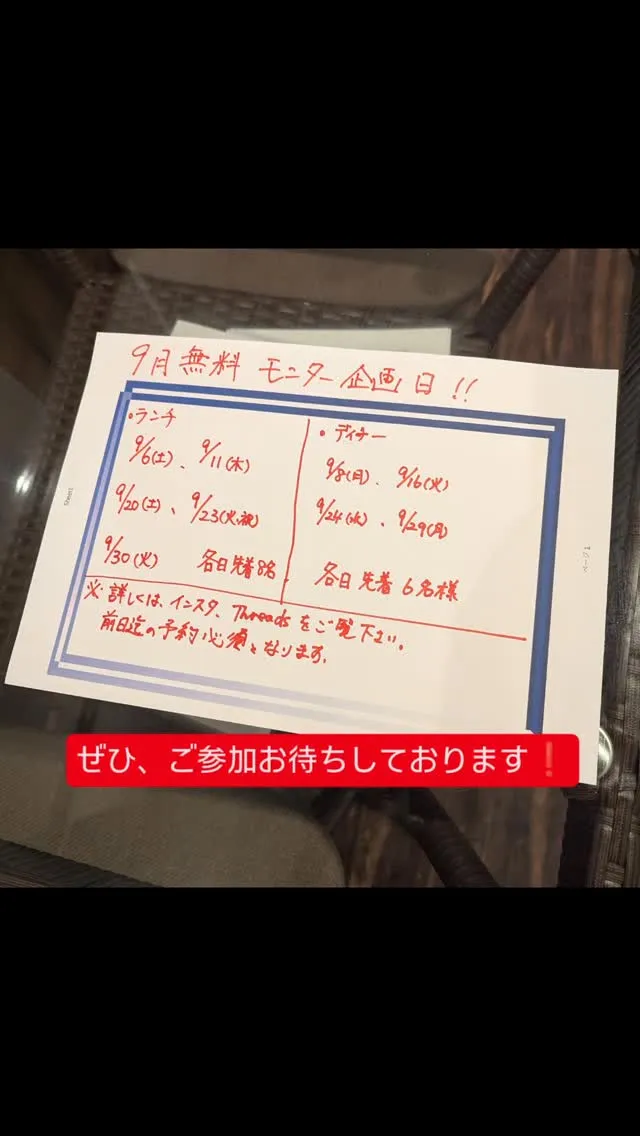 9月無料 モニター企画日!!
・ランチ
9/6(土)、9/11(木)
9/20(土)、9/23(火、祝)
9/30(火) 各日先着8名
・ディナー
9/8(月)、9/16(火)
9/24(水)、9/29(月)
各日先着 6名様
※詳しくは、インスタ、Threadsをご覧下さい。
前日迄の予約必須となります。
Sheet1
ぜひ、ご参加お待ちしております❗